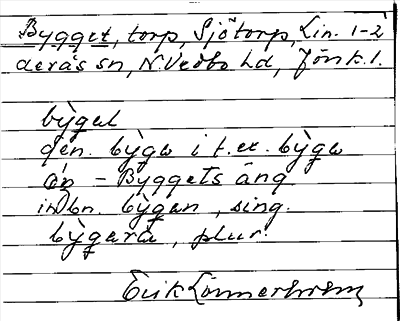 Bygget, torp, Sjötorp, Lin. 1-2
derås sn, N. Vedbo hd, Jönk. l.
bỳgel
gen. bỳgə i t.ex. bỳgə
äŋ – Byggets äng
inbn. bỳgan, sing.
bỳgara, plur.
Erik Lönnerholm